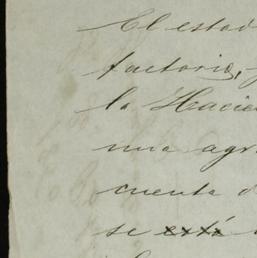 El estad
factorio,
la Hacie
una agr
cuenta d
se está